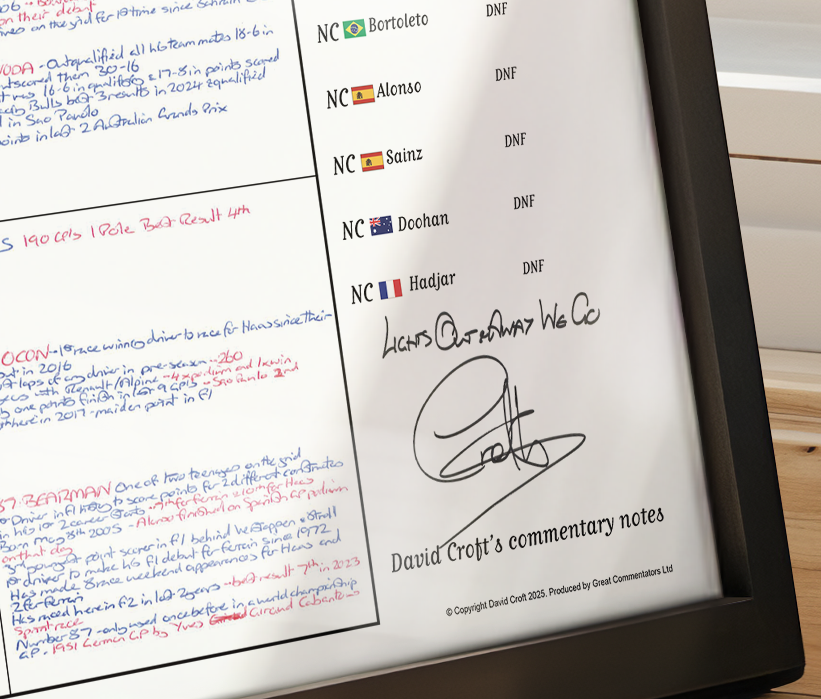 on their debut
on the grid for 1st time since
- Outqualified all his team mates 18-6 in
outscored them 30-16
16-6 in qualifying & 17-8 in points scored
Bulls best 3 results in 2024 & qualified
in Sao Paulo
points in last 2 Australian Grands Prix
190 GPs 1 Pole Best Result 4th
OCON - 1st race winning driver to race for Haas since their
in 2016
laps of any driver in pre-season - 260
with Renault/Alpine - 4 x podium and 1 x win
one points finish in last 9 GPs - Sao Paulo 2nd
here in 2017 - maiden point in F1
87 - BEARMAN One of two teenagers on the grid
Driver in F1 history to score points for 2 different constructors
in his 1st 2 career starts - 7th for Ferrari & 10th for Haas
Born May 8th 2005 - Alonso finished on Spanish GP podium
on that day
3rd youngest point scorer in F1 behind Verstappen & Stroll
driver to make his F1 debut for Ferrari since 1972
Has made 3 race weekend appearances for Haas and
2 for Ferrari
Has raced here in F2 in last 2 years - best result 7th in 2023
Sprint race
Number 87 - only used once before in a world championship
GP - 1951 German GP by Yves Giraud Cabantous
NC Bortoleto DNF
NC Alonso DNF
NC Sainz DNF
NC Doohan DNF
NC Hadjar DNF
LIGHTS OUT & AWAY WE GO
Crofty
David Croft's commentary notes
© Copyright David Croft 2025. Produced by Great Commentators Ltd